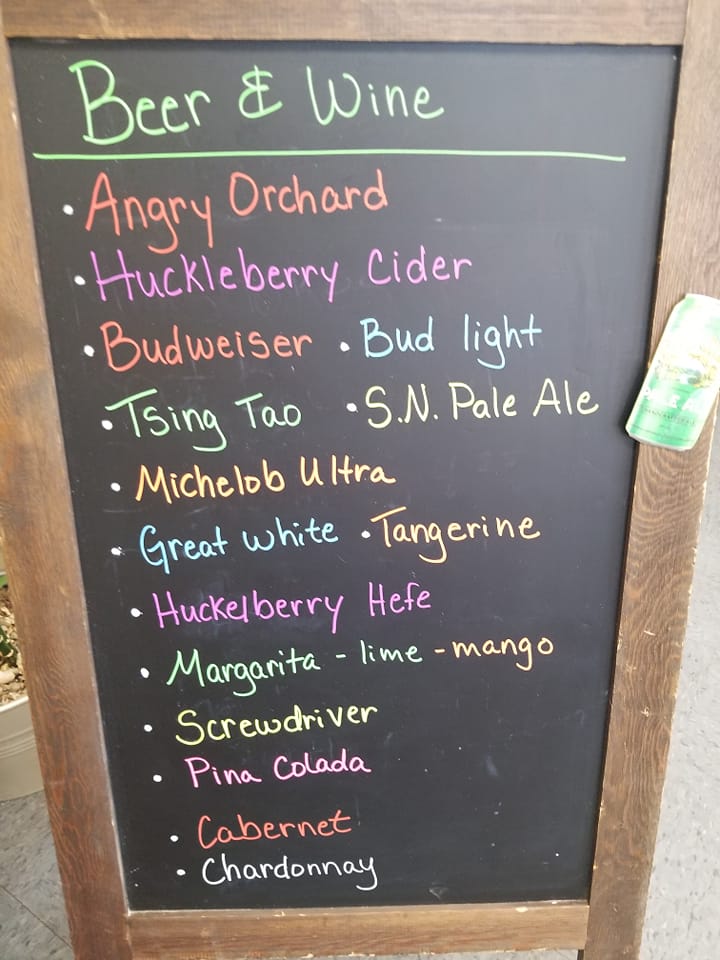 Beer & Wine
• Angry Orchard
• Huckleberry Cider
• Budweiser • Bud light
• Tsing Tao • S.N. Pale Ale
• Michelob Ultra
• Great white • Tangerine
• Huckelberry Hefe
• Margarita - lime - mango
• Screwdriver
• Pina Colada
• Cabernet
• Chardonnay